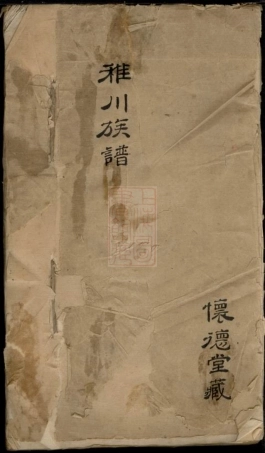 稚川族譜
懷德堂藏